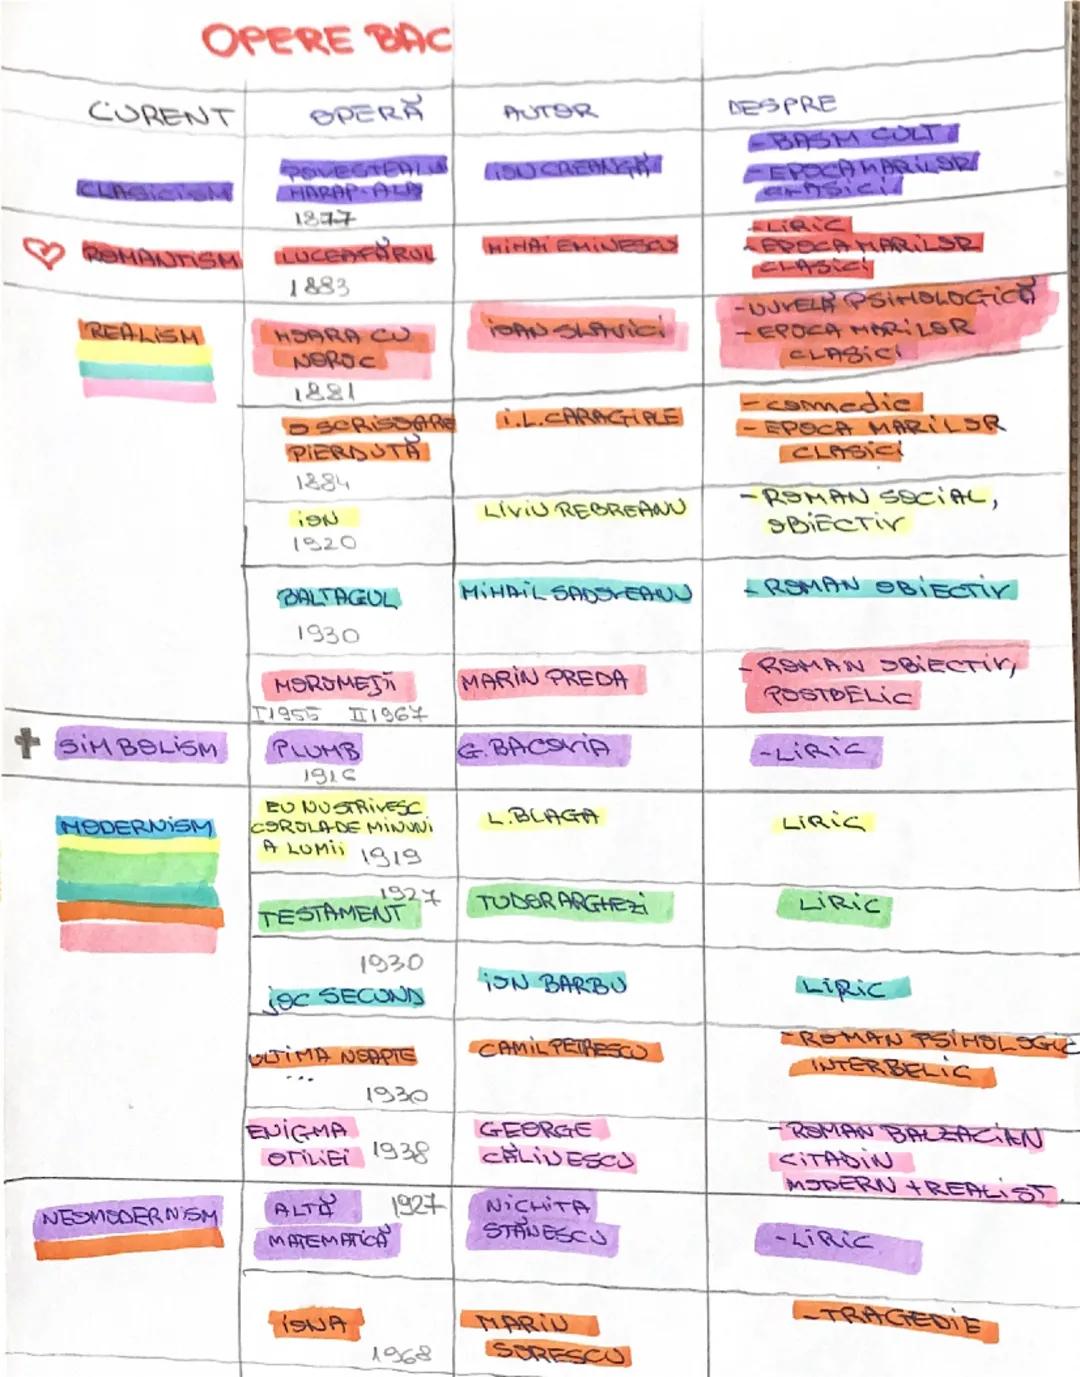 OPERE BAC
CURENT OPERĂ AUTOR DESPRE
- BASM CULT
POVESTEA LUI ION CREANGĂ - EPOCA MARILOR
CLASICISM HARAP-ALB CLASICI
1877
- LIRIC
ROMANTISM LUCEAFĂRUL MIHAI EMINESCU - EPOCA MARILOR
CLASICI
1883
- NUVELĂ PSIHOLOGICĂ
REALISM MOARA CU IOAN SLAVICI - EPOCA MARILOR
NOROC CLASICI
1881
- comedie
O SCRISOARE I.L.CARAGIALE - EPOCA MARILOR
PIERDUTĂ CLASICI
1884
ION LIVIU REBREANU - ROMAN SOCIAL,
1920 OBIECTIV
BALTAGUL MIHAIL SADOVEANU - ROMAN OBIECTIV
1930
MOROMEȚII MARIN PREDA - ROMAN OBIECTIV,
POSTBELIC
I 1955 II 1967
SIMBOLISM PLUMB G. BACOVIA - LIRIC
1916
EU NU STRIVESC
MODERNISM COROLA DE MINUNI L. BLAGA LIRIC
A LUMII 1919
1927
TESTAMENT TUDOR ARGHEZI LIRIC
1930
JOC SECUND ION BARBU LIRIC
ULTIMA NOAPTE CAMIL PETRESCU - ROMAN PSIHOLOGIC
... INTERBELIC
1930
ENIGMA GEORGE - ROMAN BALZACIAN
OTILIEI 1938 CĂLINESCU CITADIN
MODERN + REALIST
NEOMODERNISM ALTĂ 1927 NICHITA
MATEMATICĂ STĂNESCU - LIRIC
IONA MARIN - TRAGEDIE
1968 SORESCU